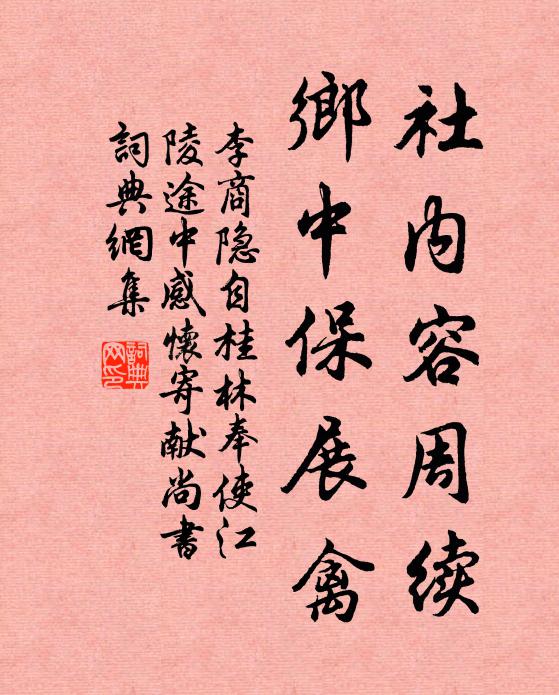 社内容周续
鄉中保展禽
李商隐自桂林奉使江
陵途中感懷寄献尚書
詞典網集
詞典
网印